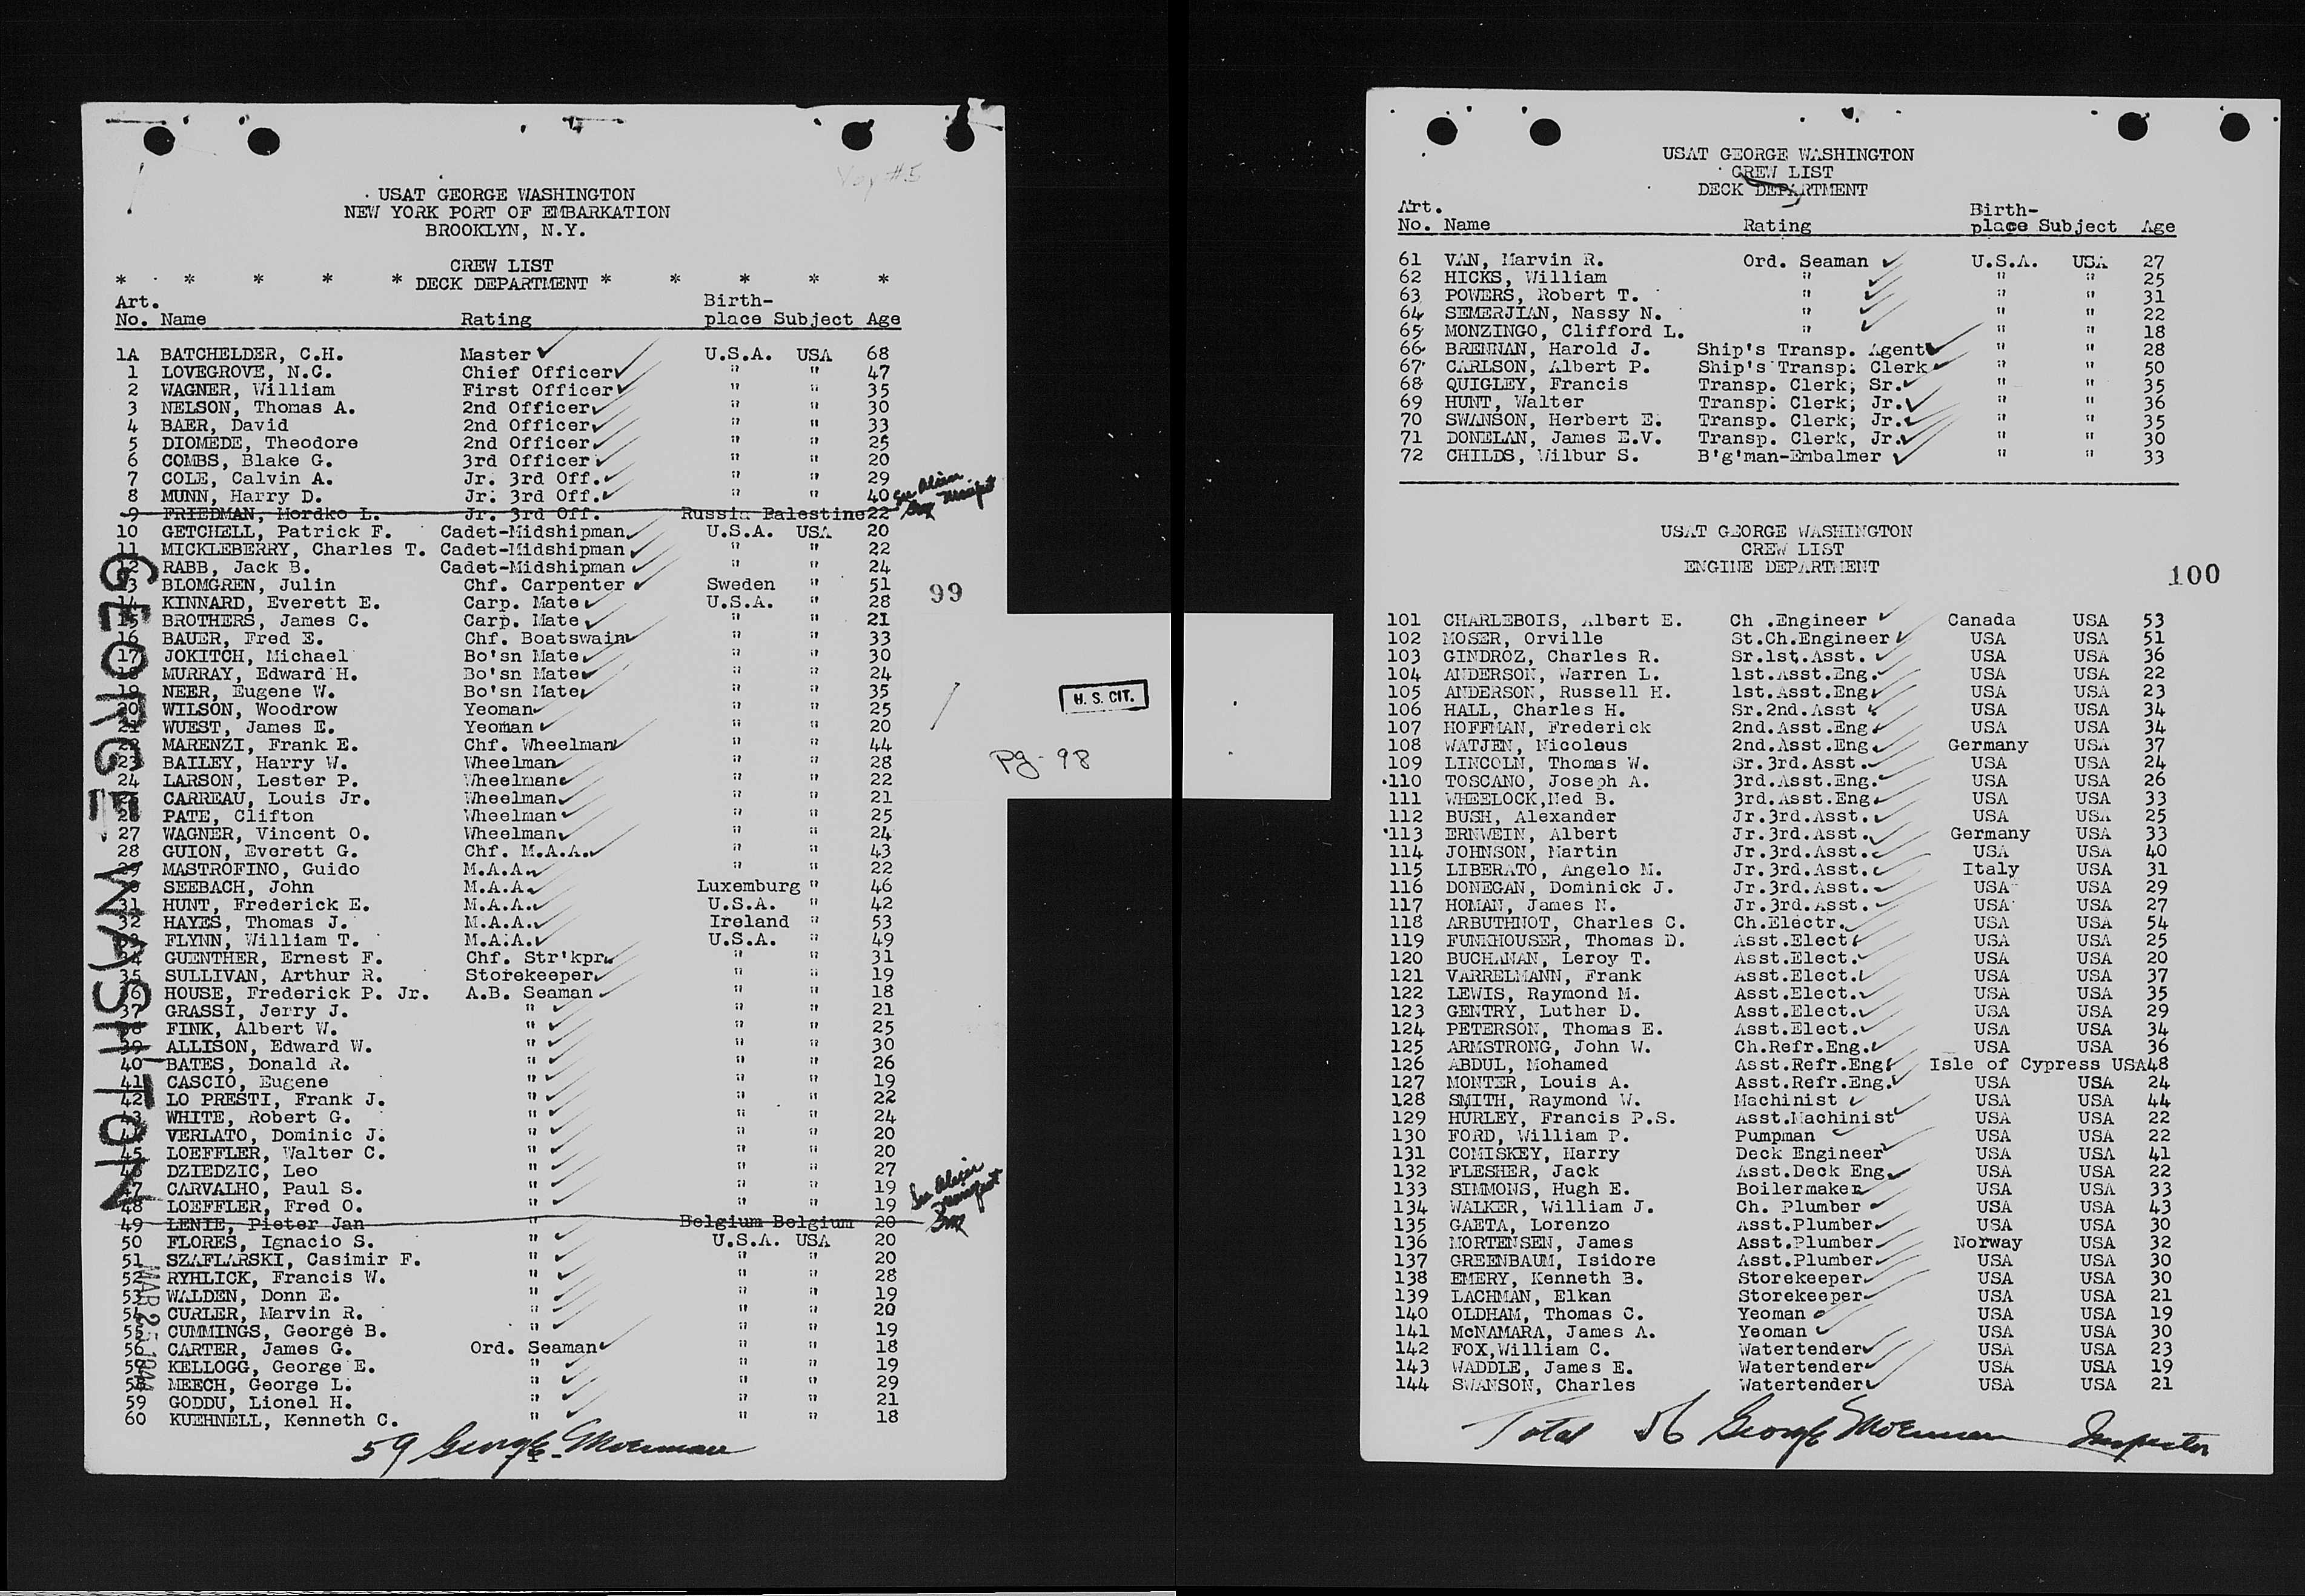 Voy #5
USAT GEORGE WASHINGTON
NEW YORK PORT OF EMBARKATION
BROOKLYN, N.Y.
CREW LIST
* * * * * DECK DEPARTMENT * * * * *
Art. Birth-
No. Name Rating place Subject Age
1A BATCHELDER, C.H. Master U.S.A. USA 68
1 LOVEGROVE, N.C. Chief Officer " " 47
2 WAGNER, William First Officer " " 35
3 NELSON, Thomas A. 2nd Officer " " 30
4 BAER, David 2nd Officer " " 33
5 DIOMEDE, Theodore 2nd Officer " " 25
6 COMBS, Blake G. 3rd Officer " " 20
7 COLE, Calvin A. Jr. 3rd Off. " " 29
8 MUNN, Harry D. Jr. 3rd Off. " " 40 See Alien Manifest
9 FRIEDMAN, Mordko L. Jr. 3rd Off. Russia Palestine 22
10 GETCHELL, Patrick F. Cadet-Midshipman U.S.A. USA 20
11 MICKLEBERRY, Charles T. Cadet-Midshipman " " 22
12 RABB, Jack B. Cadet-Midshipman " " 24
13 BLOMGREN, Julin Chf. Carpenter Sweden " 51
14 KINNARD, Everett E. Carp. Mate U.S.A. " 28
15 BROTHERS, James C. Carp. Mate " " 21
16 BAUER, Fred E. Chf. Boatswain " " 33
17 JOKITCH, Michael Bo'sn Mate " " 30
18 MURRAY, Edward H. Bo'sn Mate " " 24
19 NEER, Eugene W. Bo'sn Mate " " 35
20 WILSON, Woodrow Yeoman " " 25
21 WUEST, James E. Yeoman " " 20
22 MARENZI, Frank E. Chf. Wheelman " " 44
23 BAILEY, Harry W. Wheelman " " 28
24 LARSON, Lester P. Wheelman " " 22
25 CARREAU, Louis Jr. Wheelman " " 21
26 PATE, Clifton Wheelman " " 25
27 WAGNER, Vincent O. Wheelman " " 24
28 GUION, Everett G. Chf. M.A.A. " " 43
29 MASTROFINO, Guido M.A.A. " " 22
30 SEEBACH, John M.A.A. Luxemburg " 46
31 HUNT, Frederick E. M.A.A. U.S.A. " 42
32 HAYES, Thomas J. M.A.A. Ireland " 53
33 FLYNN, William T. M.A.A. U.S.A. " 49
34 GUENTHER, Ernest F. Chf. Str'kpr. " " 31
35 SULLIVAN, Arthur R. Storekeeper " " 19
36 HOUSE, Frederick P. Jr. A.B. Seaman " " 18
37 GRASSI, Jerry J. " " " 21
38 FINK, Albert W. " " " 25
39 ALLISON, Edward W. " " " 30
40 BATES, Donald R. " " " 26
41 CASCIO, Eugene " " " 19
42 LO PRESTI, Frank J. " " " 22
43 WHITE, Robert G. " " " 24
44 VERLATO, Dominic J. " " " 20
45 LOEFFLER, Walter C. " " " 20
46 DZIEDZIC, Leo " " " 27
47 CARVALHO, Paul S. " " " 19
48 LOEFFLER, Fred O. " " " 19 See Alien Manifest
49 LENIE, Pieter Jan " Belgium Belgium 20
50 FLORES, Ignacio S. " U.S.A. USA 20
51 SZAFLARSKI, Casimir F. " " " 20
52 RYHLICK, Francis W. " " " 28
53 WALDEN, Donn E. " " " 19
54 CURLER, Marvin R. " " " 20
55 CUMMINGS, George B. " " " 19
56 CARTER, James G. Ord. Seaman " " 18
57 KELLOGG, George E. " " " 19
58 MEECH, George L. " " " 29
59 GODDU, Lionel H. " " " 21
60 KUEHNELL, Kenneth C. " " " 18
59 George Moerman
-1-
GEORGE WASHINGTON
MAR 25 1944
99
H. S. CIT.
pg. 98
USAT GEORGE WASHINGTON
CREW LIST
DECK DEPARTMENT
Art. Birth-
No. Name Rating place Subject Age
61 VAN, Marvin R. Ord. Seaman U.S.A. USA 27
62 HICKS, William " " " 25
63 POWERS, Robert T. " " " 31
64 SEMERJIAN, Nassy N. " " " 22
65 MONZINGO, Clifford L. " " " 18
66 BRENNAN, Harold J. Ship's Transp. Agent " " 28
67 CARLSON, Albert P. Ship's Transp. Clerk " " 50
68 QUIGLEY, Francis Transp. Clerk, Sr. " " 35
69 HUNT, Walter Transp. Clerk, Jr. " " 36
70 SWANSON, Herbert E. Transp. Clerk, Jr. " " 35
71 DONELAN, James E.V. Transp. Clerk, Jr. " " 30
72 CHILDS, Wilbur S. B'g'man-Embalmer " " 33
USAT GEORGE WASHINGTON
CREW LIST
ENGINE DEPARTMENT
100
101 CHARLEBOIS, Albert E. Ch .Engineer Canada USA 53
102 MOSER, Orville St.Ch.Engineer USA USA 51
103 GINDROZ, Charles R. Sr.1st.Asst. USA USA 36
104 ANDERSON, Warren L. 1st.Asst.Eng. USA USA 22
105 ANDERSON, Russell H. 1st.Asst.Eng. USA USA 23
106 HALL, Charles H. Sr.2nd.Asst USA USA 34
107 HOFFMAN, Frederick 2nd.Asst.Eng USA USA 34
108 WATJEN, Nicolaus 2nd.Asst.Eng Germany USA 37
109 LINCOLN, Thomas W. Sr.3rd.Asst. USA USA 24
110 TOSCANO, Joseph A. 3rd.Asst.Eng. USA USA 26
111 WHEELOCK,Ned B. 3rd.Asst.Eng USA USA 33
112 BUSH, Alexander Jr.3rd.Asst. USA USA 25
113 ERNWEIN, Albert Jr.3rd.Asst. Germany USA 33
114 JOHNSON, Martin Jr.3rd.Asst. USA USA 40
115 LIBERATO, Angelo M. Jr.3rd.Asst. Italy USA 31
116 DONEGAN, Dominick J. Jr.3rd.Asst. USA USA 29
117 HOMAN, James N. Jr.3rd.Asst. USA USA 27
118 ARBUTHNOT, Charles C. Ch.Electr. USA USA 54
119 FUNKHOUSER, Thomas D. Asst.Elect USA USA 25
120 BUCHANAN, Leroy T. Asst.Elect. USA USA 20
121 VARRELMANN, Frank Asst.Elect. USA USA 37
122 LEWIS, Raymond M. Asst.Elect. USA USA 35
123 GENTRY, Luther D. Asst.Elect. USA USA 29
124 PETERSON, Thomas E. Asst.Elect. USA USA 34
125 ARMSTRONG, John W. Ch.Refr.Eng. USA USA 36
126 ABDUL, Mohamed Asst.Refr.Eng. Isle of Cypress USA48
127 MONTER, Louis A. Asst.Refr.Eng. USA USA 24
128 SMITH, Raymond W. Machinist USA USA 44
129 HURLEY, Francis P.S. Asst.Machinist USA USA 22
130 FORD, William P. Pumpman USA USA 22
131 COMISKEY, Harry Deck Engineer USA USA 41
132 FLESHER, Jack Asst.Deck Eng. USA USA 22
133 SIMMONS, Hugh E. Boilermaker USA USA 33
134 WALKER, William J. Ch. Plumber USA USA 43
135 GAETA, Lorenzo Asst.Plumber USA USA 30
136 MORTENSEN, James Asst.Plumber Norway USA 32
137 GREENBAUM, Isidore Asst.Plumber USA USA 30
138 EMERY, Kenneth B. Storekeeper USA USA 30
139 LACHMAN, Elkan Storekeeper USA USA 21
140 OLDHAM, Thomas C. Yeoman USA USA 19
141 McNAMARA, James A. Yeoman USA USA 30
142 FOX,William C. Watertender USA USA 23
143 WADDLE, James E. Watertender USA USA 19
144 SWANSON, Charles Watertender USA USA 21
Total 56 George Moerman Inspector